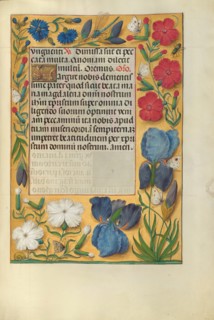 unguentū. Dimissa sūt ei pec
cata multa. Quoniam dilexit
multū. Oremus. Oro.
Largire nobis clementis
sime pater quod sicut beata ma
ria magdalena dnm nostrum
ihm xpistum super omnia di
ligendo suorum optinuit ven
iam peccaminū ita nobis apud
tuam misericordiā sempiternā
impetret beatitudinem per xpi
stum dominū nostrum. Amen.